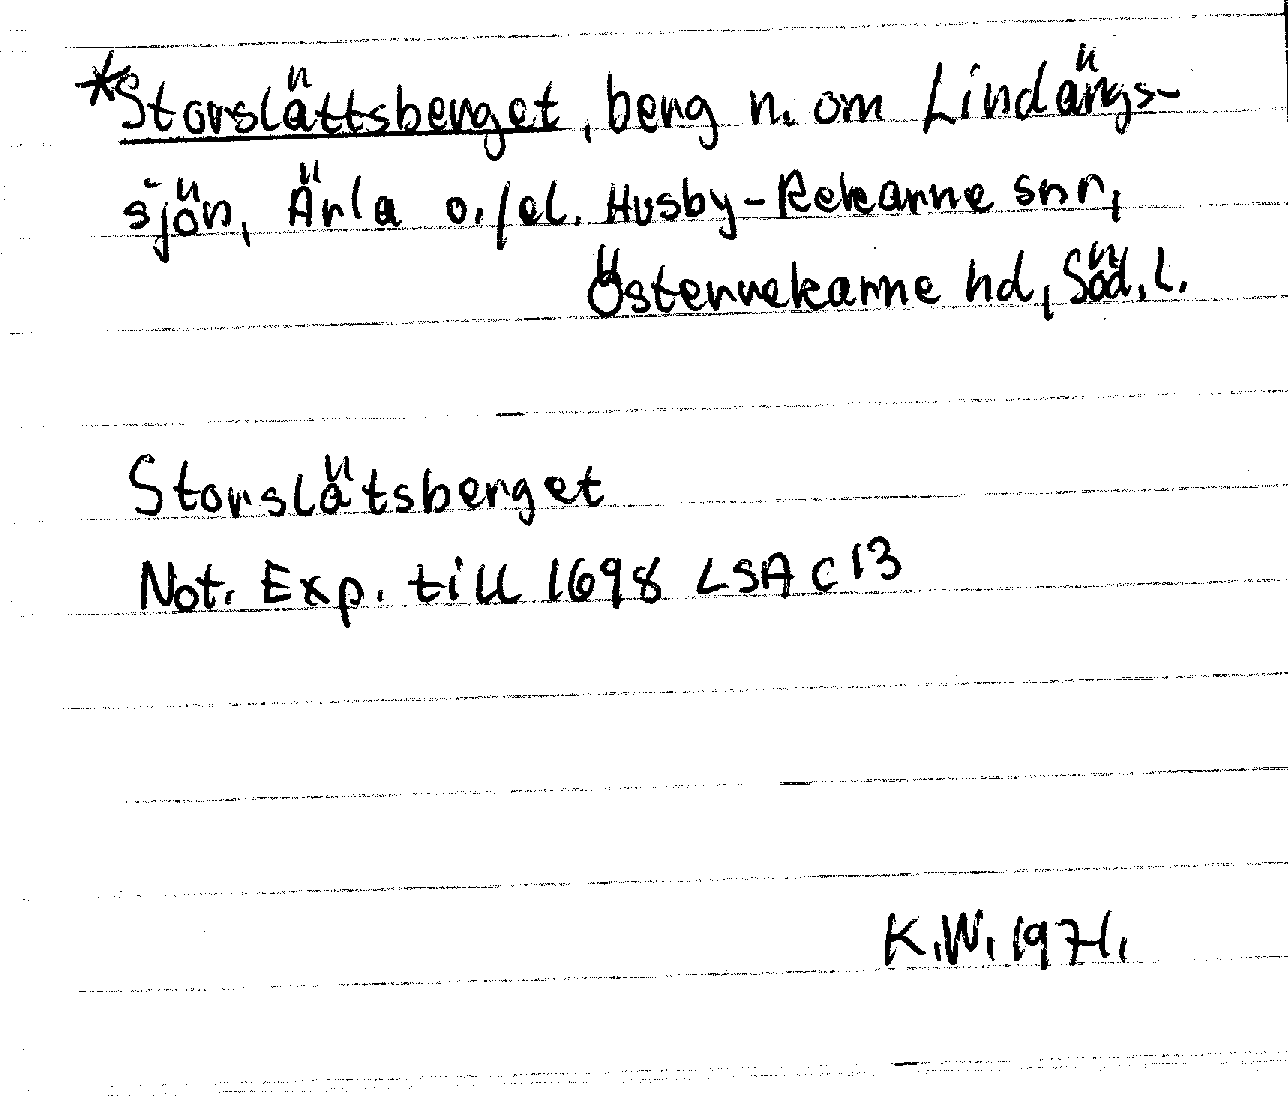 *Storslättsberget, berg n. om Lindängs-
sjön, Ärla o./el. Husby-Rekarne snr,
Österrekarne hd, Söd. l.
Storslätsberget
Not. Exp. till 1698 LSA C 13
K.W. 1971.